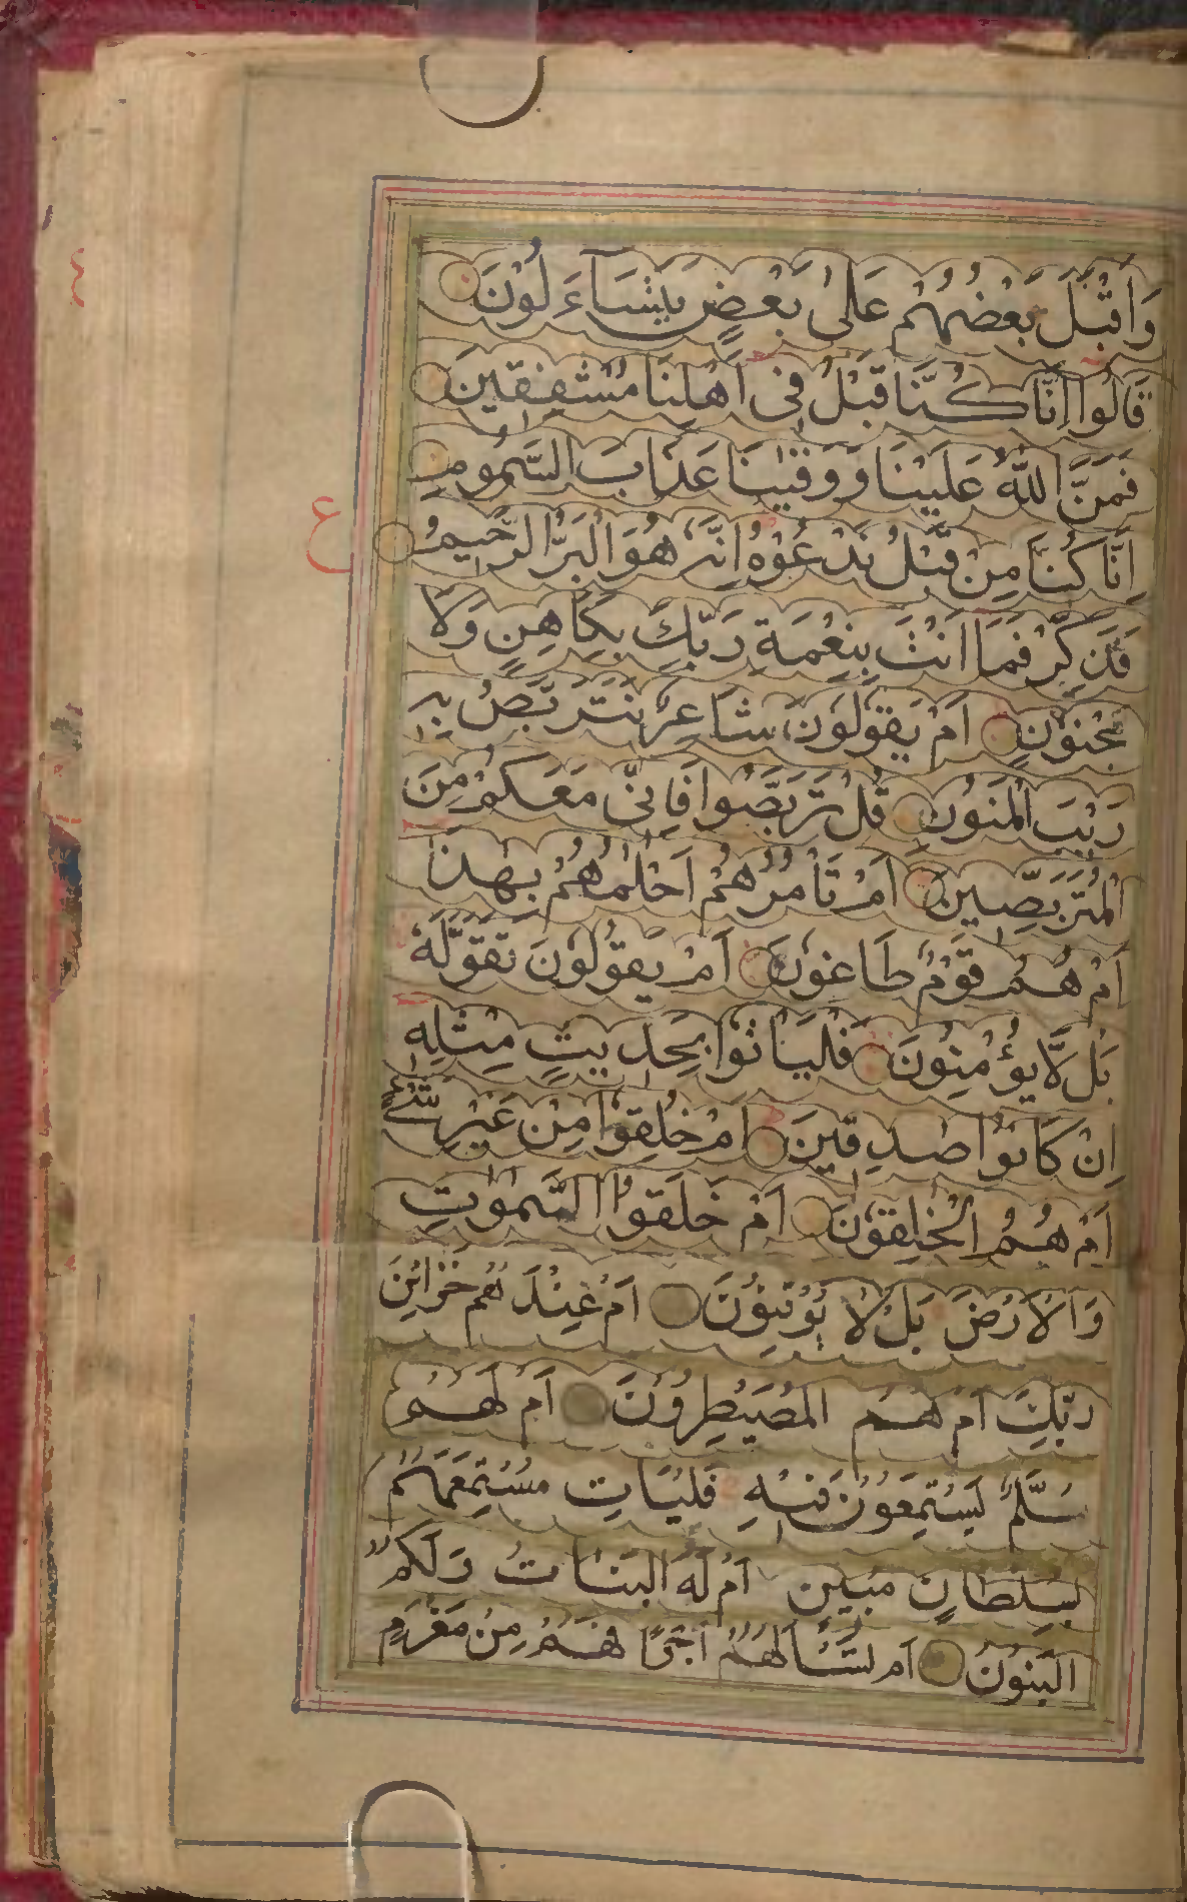 وَاَقْبَلَ بَعْضُهُمْ عَلٰى بَعْضٍ يَّتَسَآءَلُوْنَ
قَالُوا اِنَّا كُنَّا قَبْلُ فِى اَهْلِنَا مُشْفِقِيْنَ
فَمَنَّ اللّٰهُ عَلَيْنَا وَوَقٰىنَا عَذَابَ السَّمُومِ
اِنَّا كُنَّا مِنْ قَبْلُ نَدْعُوْهُ اِنَّهٗ هُوَ الْبَرُّ الرَّحِيْمُ
ع
فَذَكِّرْ فَمَا اَنْتَ بِنِعْمَةِ رَبِّكَ بِكَاهِنٍ وَلَا
مَجْنُوْنٍ اَمْ يَقُوْلُوْنَ شَاعِرٌ نَتَرَبَّصُ بِهٖ
رَيْبَ الْمَنُوْنِ قُلْ تَرَبَّصُوا فَاِنِّى مَعَكُمْ مِنَ
الْمُتَرَبِّصِيْنَ اَمْ تَأْمُرُهُمْ اَحْلٰمُهُمْ بِهٰذَا
اَمْ هُمْ قَوْمٌ طَاغُوْنَ اَمْ يَقُوْلُوْنَ تَقَوَّلَهٗ
بَلْ لَّا يُؤْمِنُوْنَ فَلْيَاْتُوْا بِحَدِيْثٍ مِثْلِهٖ
اِنْ كَانُوْا صٰدِقِيْنَ اَمْ خُلِقُوْا مِنْ غَيْرِ شَىْءٍ
اَمْ هُمُ الْخٰلِقُوْنَ اَمْ خَلَقُوا السَّمٰوٰتِ
وَالْاَرْضَ بَلْ لَا يُوْقِنُوْنَ اَمْ عِنْدَهُمْ خَزَائِنُ
رَبِّكَ اَمْ هُمُ الْمُصَيْطِرُوْنَ اَمْ لَهُمْ
سُلَّمٌ يَسْتَمِعُوْنَ فِيْهِ فَلْيَاْتِ مُسْتَمِعُهُمْ
بِسُلْطَانٍ مُبِيْنٍ اَمْ لَهُ الْبَنَاتُ وَلَكُمُ
الْبَنُوْنَ اَمْ تَسْاَلُهُمْ اَجْرًا فَهُمْ مِنْ مَغْرَمٍ